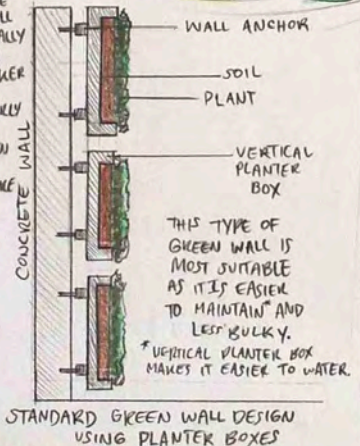 WALL ANCHOR
SOIL
PLANT
VERTICAL
PLANTER
BOX
CONCRETE WALL
THIS TYPE OF
GREEN WALL IS
MOST SUITABLE
AS IT IS EASIER
TO MAINTAIN* AND
LESS BULKY.
* VERTICAL PLANTER BOX
MAKES IT EASIER TO WATER.
STANDARD GREEN WALL DESIGN
USING PLANTER BOXES